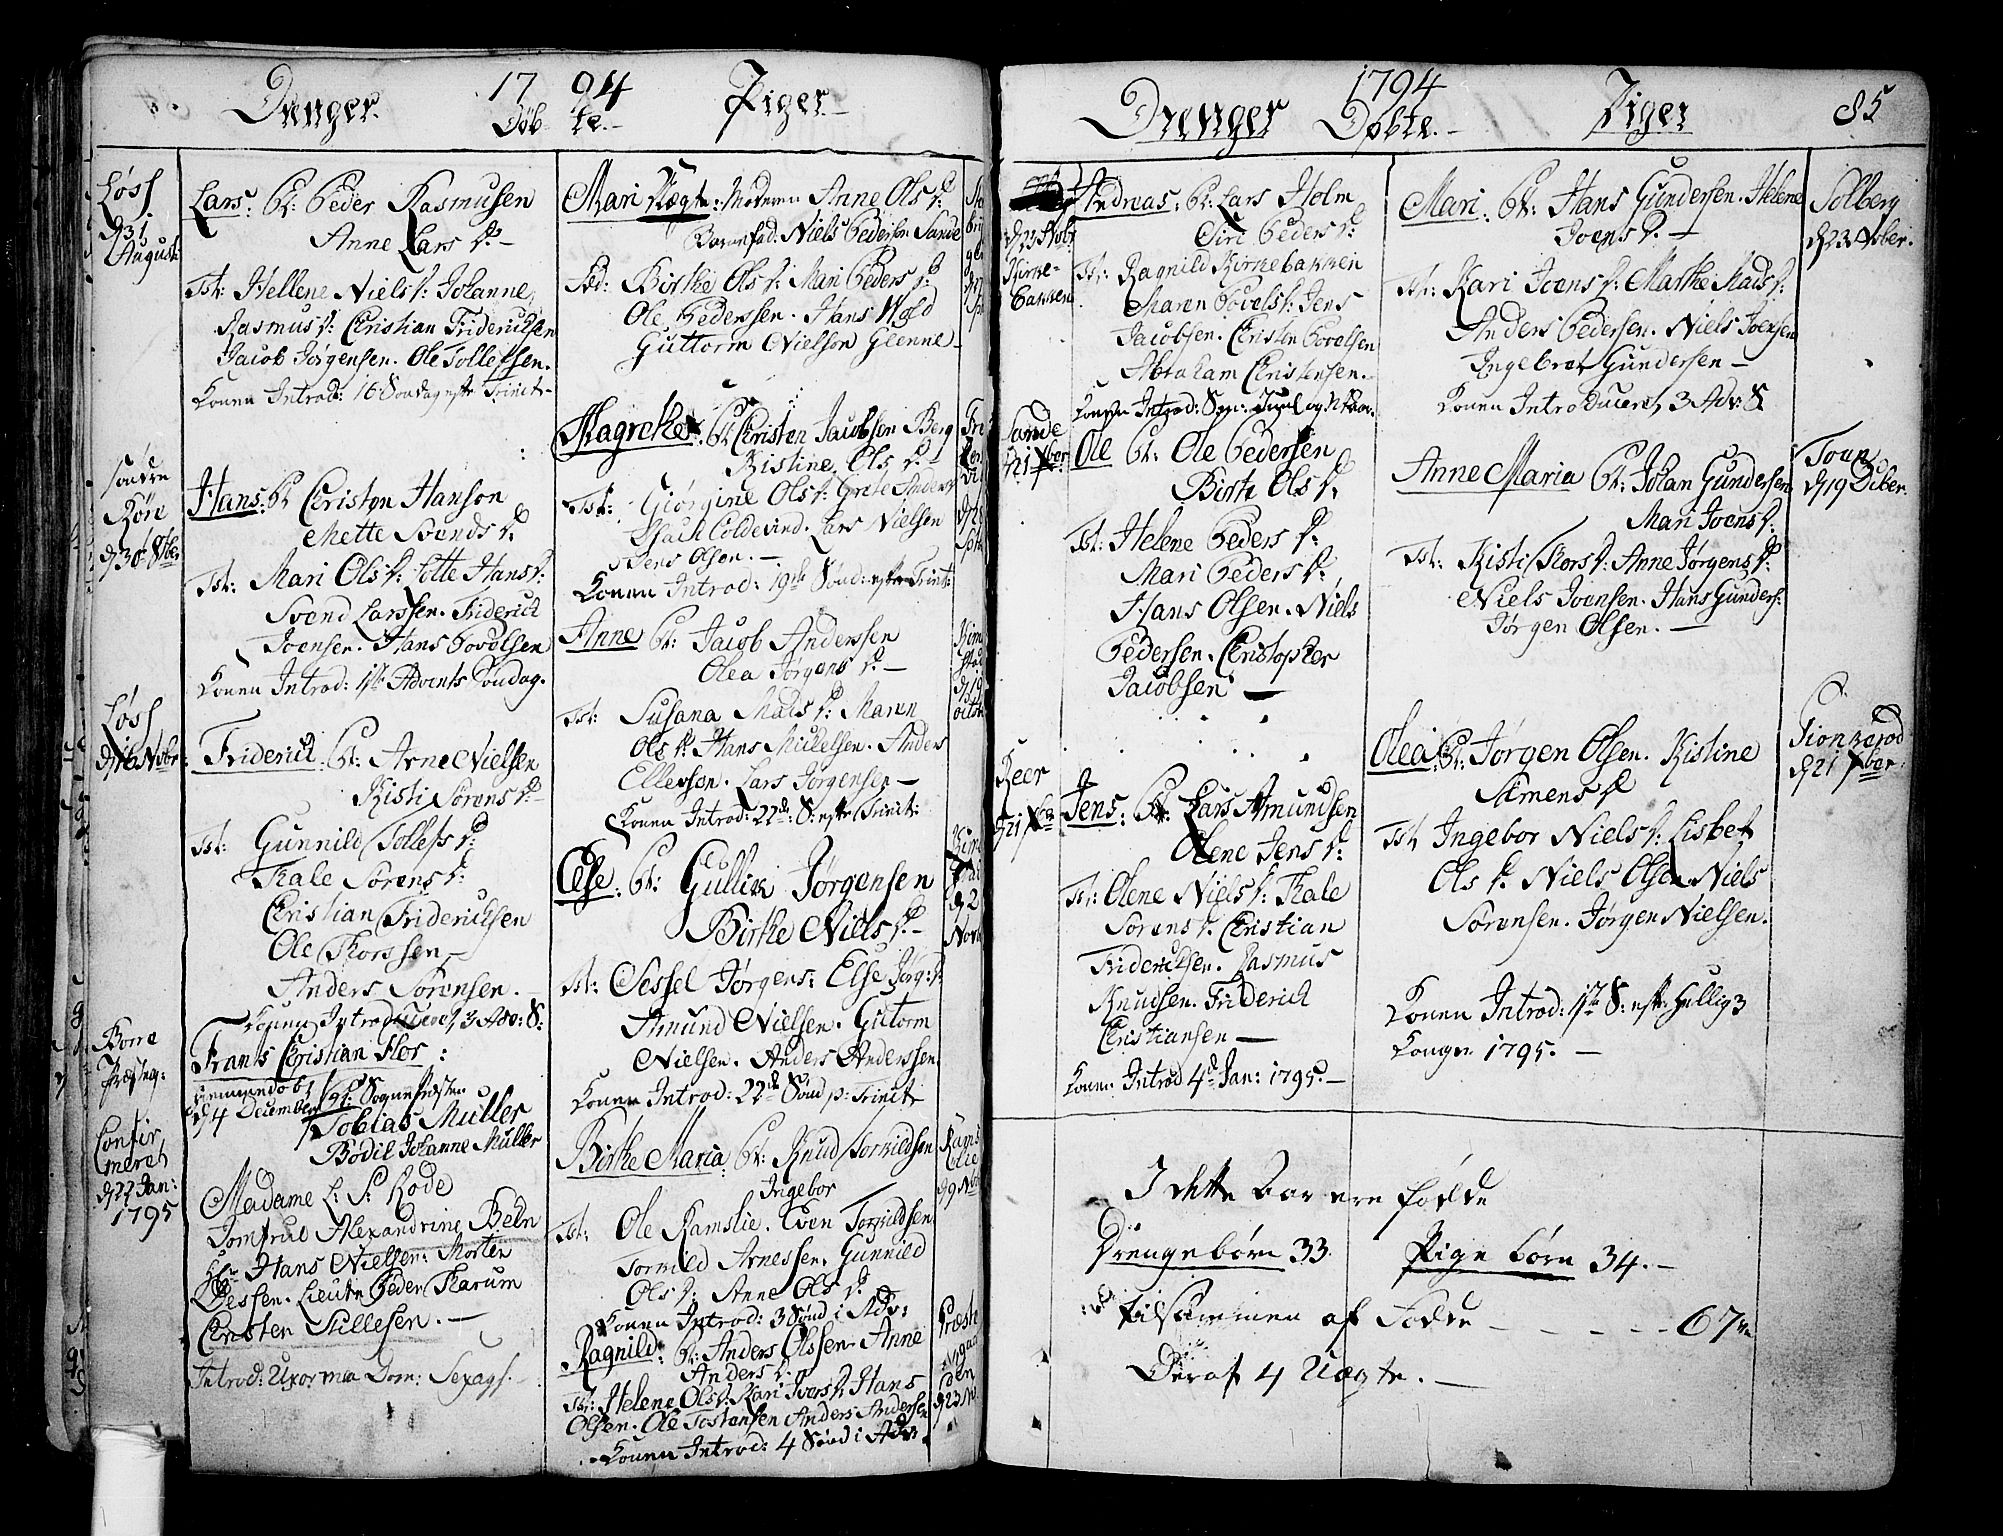 1794
Drenger. Døbte.- Piger.-
Løss
d 31
August
Lars: Ch: Peder Rasmusen
Anne Lars D:-
Tst: Hellene Niels D: Johanne
Rasmus D: Christian Friderichsen
Jacob Jørgensen. Ole Tollefsen.
Konen Introd: 16 Søndag efter Trinit-
Søndre
Røre
d 30
Hans: Ch: Christen Hanson
Mette Svends D:
Tst: Mari Ols D: Lotte Hans D:
Svend Larssen. Friderich
Joensen. Hans Povelsen
Konen Introd: 1ste Advents Søndag.
Løss
d 16 Novbr:
Friderich: Ch: Arne Nielsen
Kisti Sørens D:-
Tst: Gunnild Tollefs D:
Thale Sørens D:
Christian Friderichsen
Ole Thorssen
Anders Sørensen.-
Konen Introduceret 3 Adv: S:
Borre
Præsteg:
Confir
meret
d 22 Jan:
1795
Frants Christian Flor:
hiemmedøbt
d 4 December Ch: Sognepresten
Tobias Muller
Bodil Johanne Muller
Madame L: S: Rode
Jomfrue Alexandrine
Hr Hans Nielsen. Morten
Dessen. Lieutn Peder Tharum
Christen Stillesen.-
Introd: Uxor mea Dom: Sexages.-
Mari Uægte: Moderen Anne Ols D:
Barnefad: Niels Pedersen Sande
Fad: Birthe Ols D: Mari Peders D:
Ole Pederssen. Hans Wold
Guttorm Nielsøn Glenne-
Magrethe: Ch: Christen Jacobsen Berg
Kistine Ols D:-
Tst: Giørgine Ols D: Grete Anders
Isach Coldevind. Lars Nielsen
Jens Olsen.-
Konen Introd: 19de Sønd: efter Trinit:
Anne Ch: Jacob Anderssen
Olea Jørgens D:-
Tst: Susana Mads D: Maren
Ols D: Hans Mickelsen. Anders
Ellefsen. Lars Jørgensen-
Konen Introd: 22de S: efter Trinit:
d 19
Else: Ch: Gullik Jørgensen
Birthe Niels D:-
Tst: Sessel Jørgens: Else Jørg: D:
Amund Nielsen. Gutorm
Nielsen. Anders Anderssen.
Konen Introd: 22de Sønd p: Trinit
d 2
Nov
Birthe Maria: Ch: Knud Torkildsen
Ingebor
Tst: Ole Ramslie. Even Torkildsen
Torkild Arnessen. Gunnild
Ols D: Anne Ols D:
Konen Introd: 3 Sønd i Adv:
Rams
lie
d 9 Nbr
Ragnild: Ch: Anders Olssen. Anne
Anders D:
Tst: Helene Ols D: Kari Ivers D: Hans
Olsen. Ole Tostensen Anders Andersen
Konen Introd: 4 Sønd i Adv:
Præste
d 23 N
1794 85
Drenger Døbte.- Piger
d 23 Novbr
Kirke-
bakken
Andreas: Ch: Lars Holm
Siri Peders D:
Tst: Ragnild Kirkebakken
Maren Povels D: Jens
Jacobsen. Christen Povelsen
Abraham Christensen.-
Konen Introd: Søn: Juul og Nytaar.
Sande
d 21 Xber
Ole Ch: Ole Pedersen
Birthe Ols D.
Tst: Helene Peders D:
Mari Peders D:
Hans Olsen. Niels
Pedersen. Christopher
Jacobsen -
Reer
d 21 Xbr
Jens: Ch: Lars Amundsen
Olene Jens D:
Tst: Olene Niels D: Thale
Sørens D. Christian
Friderichsen. Rasmus
Knudsen. Friderich
Christiansen -
Konen Introd 4de Jan: 1795.-
Mari. Ch: Hans Gundersen. Helene
Joens D.-
Tst: Kari Joens D: Marthe Mads D:
Anders Pedersen. Niels Joensen
Ingebret Gundersen-
Konen Introduceret 3 Adv: S
Solberg
d 23 Nober.
Anne Maria Ch: Johan Gundersen
Mari Joens D:
Tst: Kisti Thors D: Anne Jørgens D:
Niels Joensen. Hans Gunders:
Jørgen Olsen.-
d 19 Dcber.
Olea Ch: Jørgen Olsen. Kistine
Simens D
Tst Ingebor Niels D: Lisbet
Ols D. Niels Olsen Niels
Sørensen. Jørgen Nielsen.
Konen Introd: 1ste S: efter Hellig 3
Konger 1795.-
d 21 Xber
I dette Aar ere fødde
Drengebørn 33. Pige børn 34.-
tilsammen af Fødde - - - - - 67
Deraf 4 Uægte.-